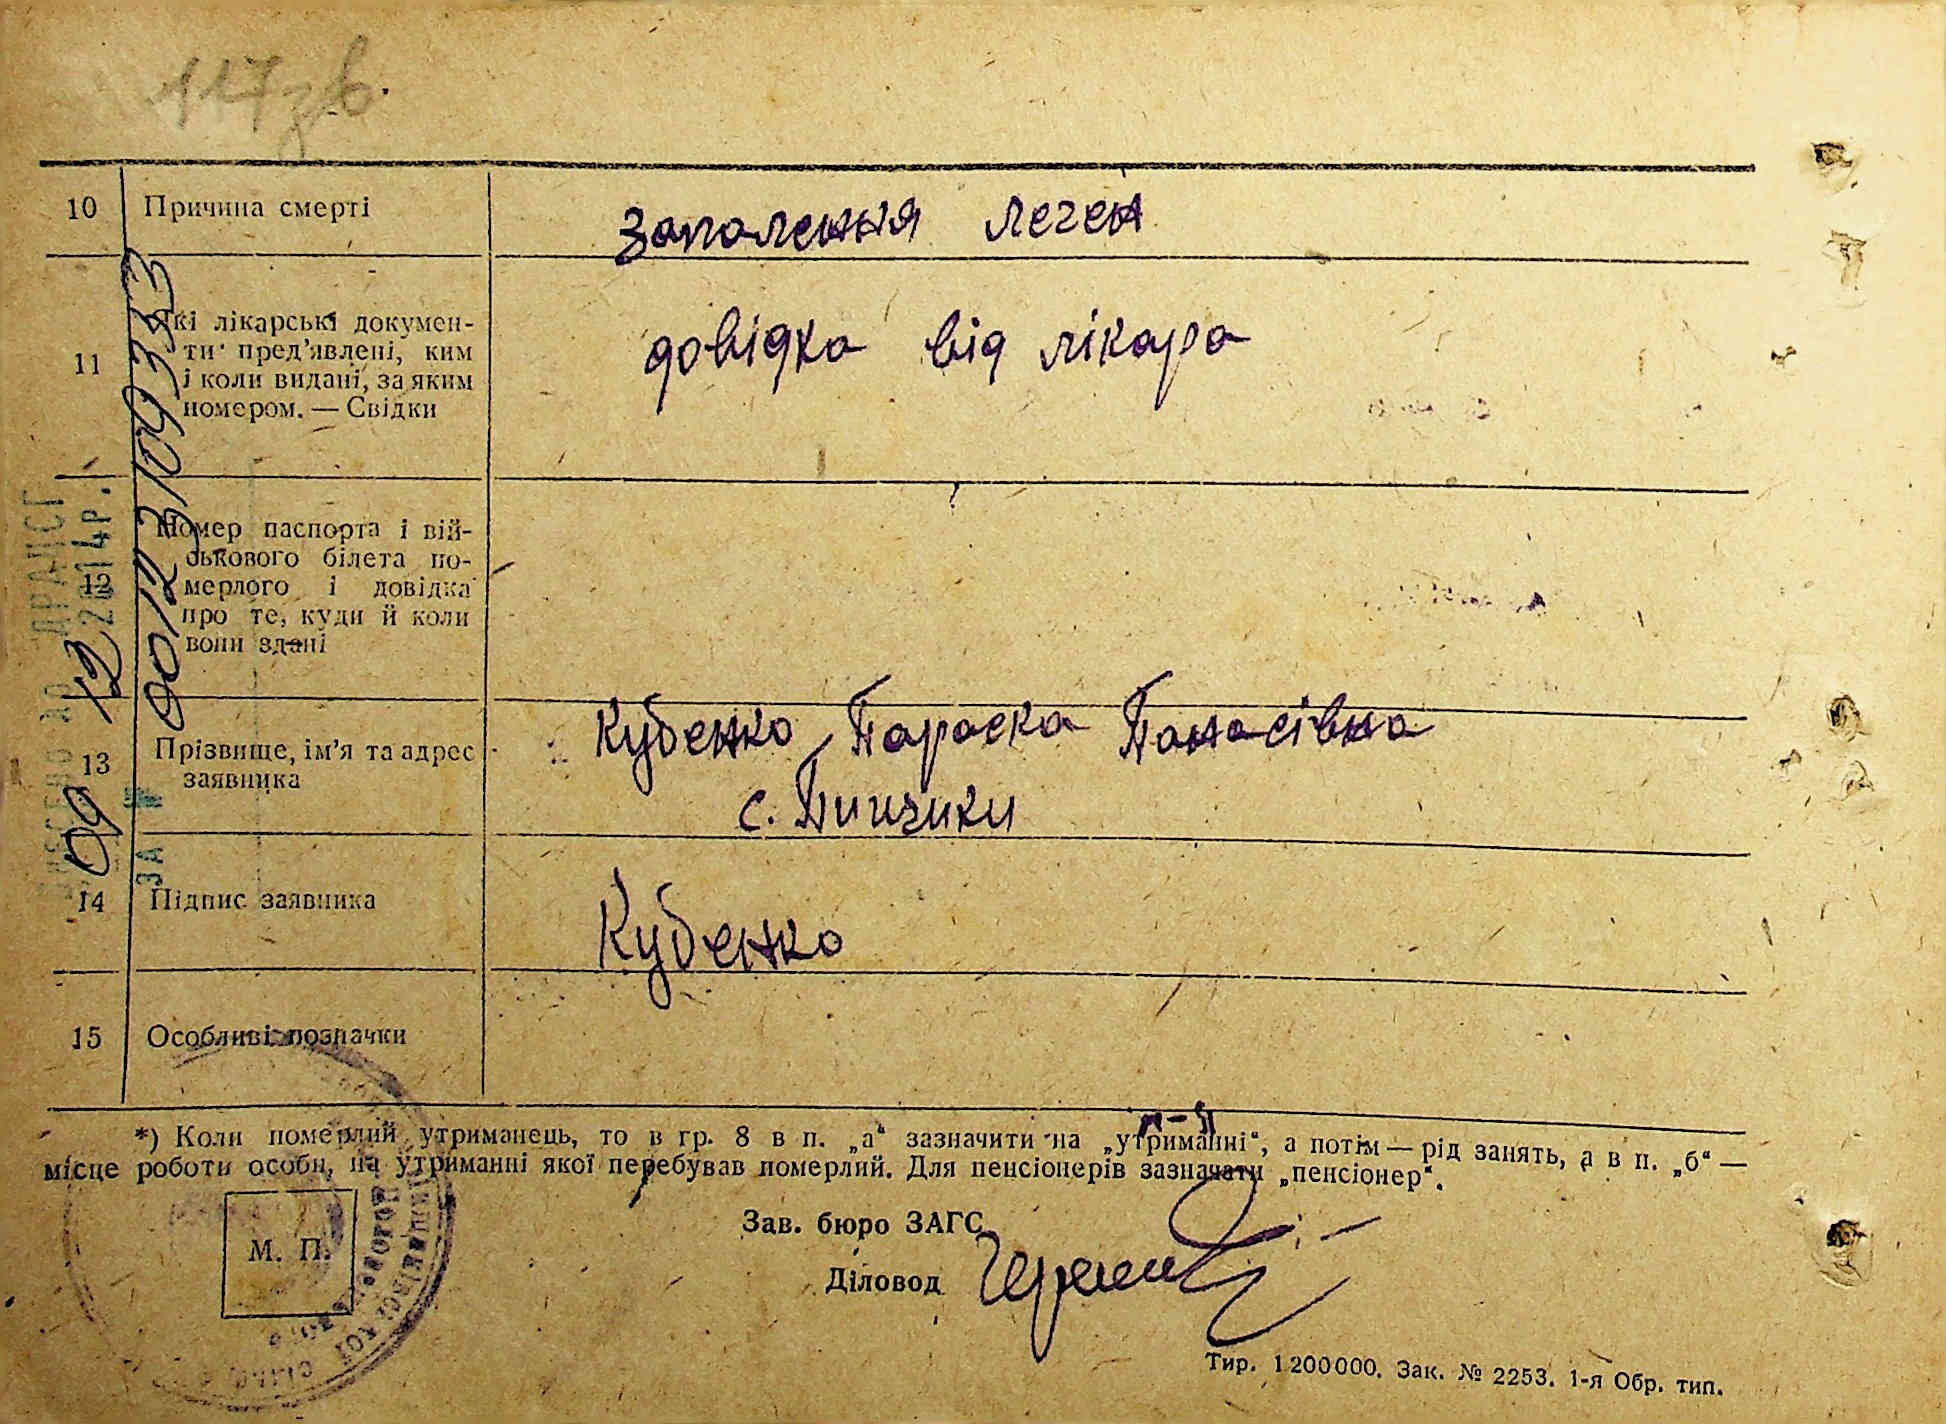 117 зв.
10 Причина смерті запалення леген
11 Які лікарські докумен-
ти пред'явлені, ким
і коли видані, за яким
номером. — Свідки
довідка від лікара
12 Номер паспорта і вій-
ськового білета по-
мерлого і довідка
про те, куди й коли
вони здані
13 Прізвище, ім'я та адрес
заявника
Кубенко Параска Панасівна
с. Пищики
14 Підпис заявника
Кубенко
15 Особливі позначки
*) Коли померлий утриманець, то в гр. 8 в п. „а“ зазначити на „утриманні“, а потім — рід занять, а в п. „б“ —
місце роботи особи, на утриманні якої перебував померлий. Для пенсіонерів зазначати „пенсіонер“.
М. П.
Зав. бюро ЗАГС
Діловод
Тир. 1200000. Зак. № 2253. 1-я Обр. тип.
ДРАЦСГ
09 12 2014р.
ЗА № 00123109333